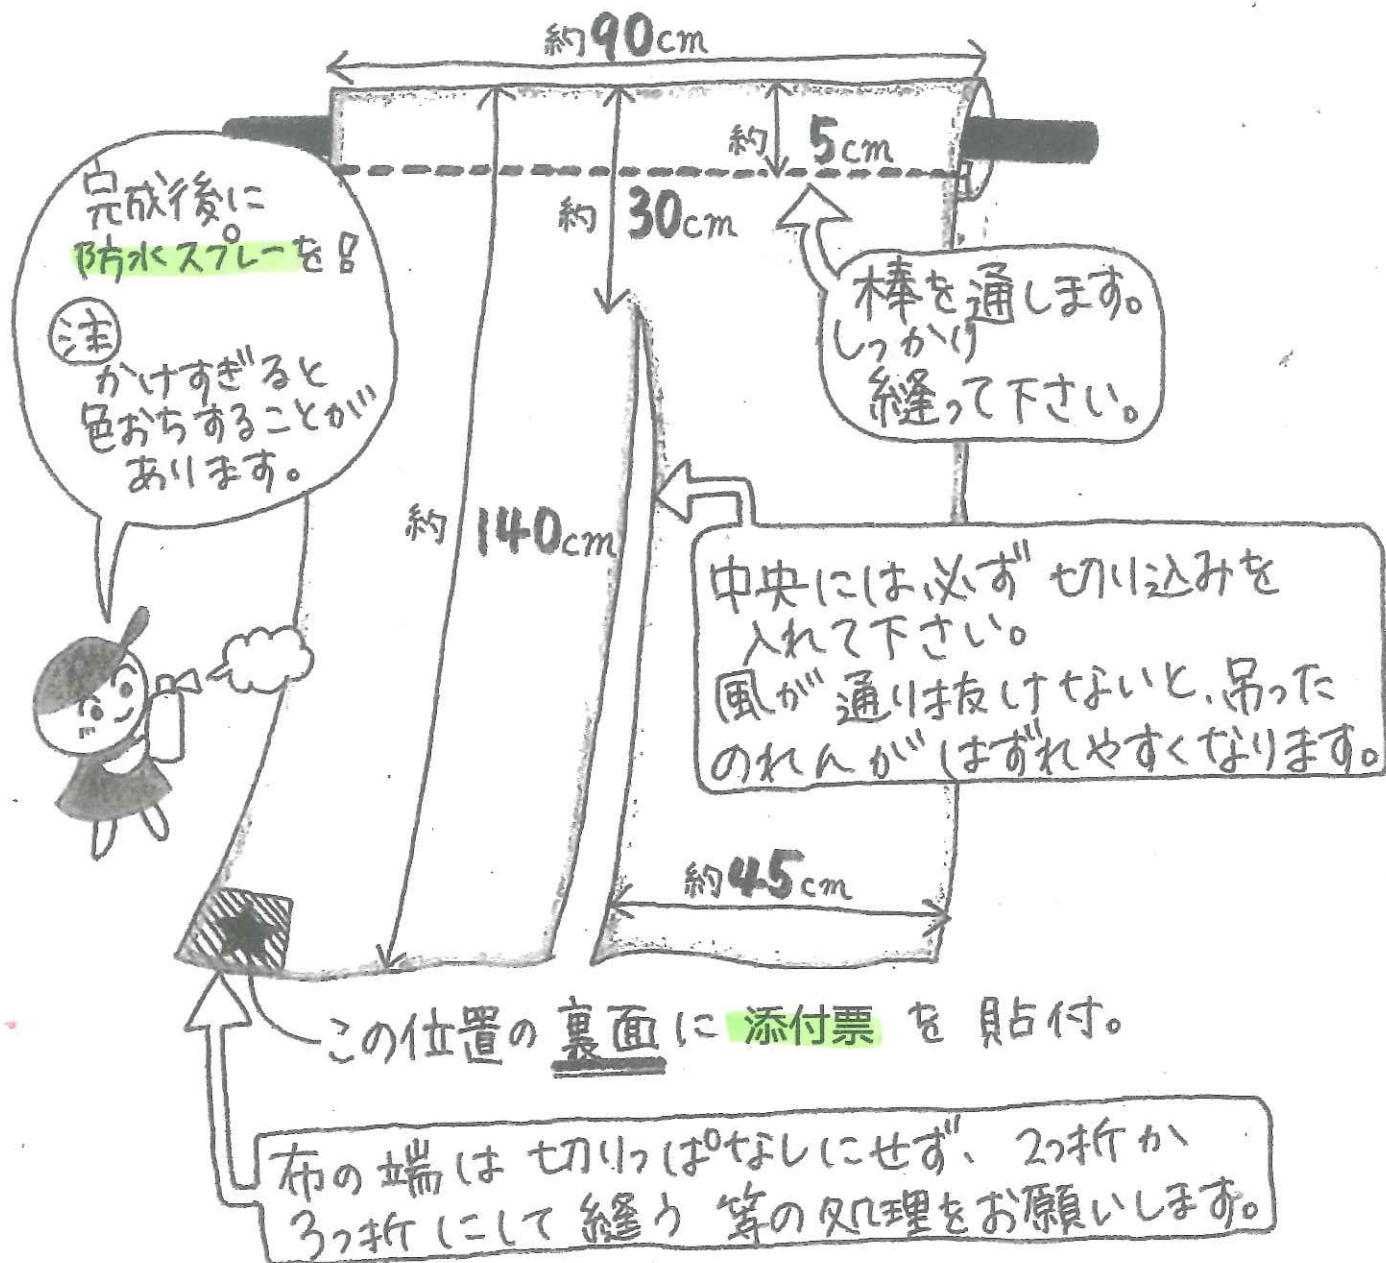 約90cm
約 5cm
約 30cm
完成後に
防水スプレーを!
注
かけすぎると
色おちすることが
あります。
棒を通します。
しっかり
縫って下さい。
約 140cm
中央には必ず切り込みを
入れて下さい。
風が通り抜けないと、吊った
のれんがはずれやすくなります。
約45cm
この位置の裏面に添付票を貼付。
布の端は切りっぱなしにせず、2つ折か
3つ折にして縫う等の処理をお願いします。